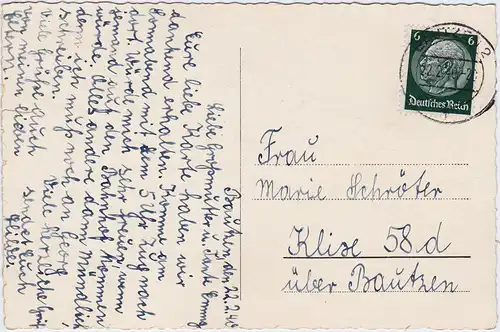 Bautzen, d. 22.2.40
Liebe Großmutter u. Tante Emmy
Eure liebe Karte haben wir
dankend erhalten. Komme am
Sonnabend mit dem 5 Uhr Zug nach
dort. Würde mich sehr freuen, wenn
jemand auf den Bahnhof kommen
würde. Alles andere dann mündlich
denn ich muß noch an Georg
schreiben. Viele herzliche
Viele Grüße auch sendet Euch
von meinen lieben
Eltern.
6 6
Deutsches Reich
Frau
Marie Schröter
Klix 58 d
über Bautzen